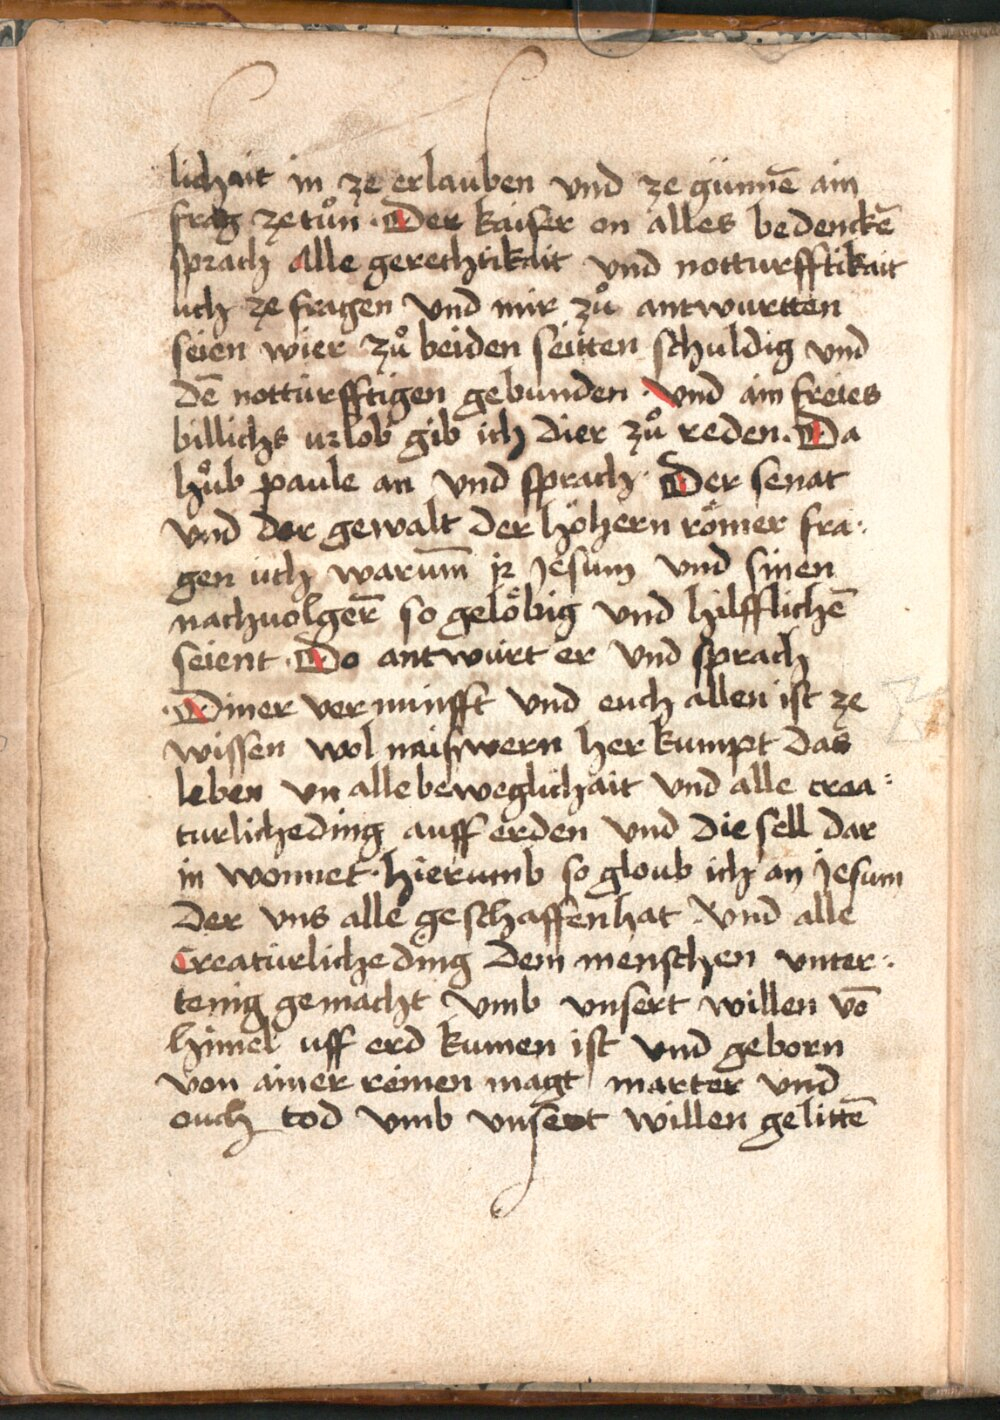 lichait in ze erlauben vnd ze günnē ain
frag ze tůn · Der kaiser on alles bedenckē
sprach Alle gerechtikait vnd notturfftikait
uch ze fragen vnd mir zů antwurtten
seien wier zů beiden seitten schuldig vnd
dē notturfftigen gebunden · vnd ain freies
billichs urlob gib ich dier zů reden · Da
hůb paule an vnd sprach · Der senat
vnd der gewalt der höhern römer fra·
gen üch warum̄ ir Jesum vnd sinen
nachuolger̄ so gelöbig vnd hilfflichē
seient · Do antwürt er vnd sprach
· Diner vernunfft vnd euch allen ist ze
wissen wol wern her kumpt das
leben vn alle beweglichait vnd alle crea:
turliche ding auff erden vnd die sell dar
in wonnet · hierumb so gloub ich an Jesum
Der vns alle geschaffen hat vnd alle
Creatürliche ding dem menschen vnter:
tenig gemacht vmb vnsert willen vō
himel uff erd kumen ist vnd geborn
von ainer reinen magt / marter vnd
ouch tod vmb vnsert willen gelittē